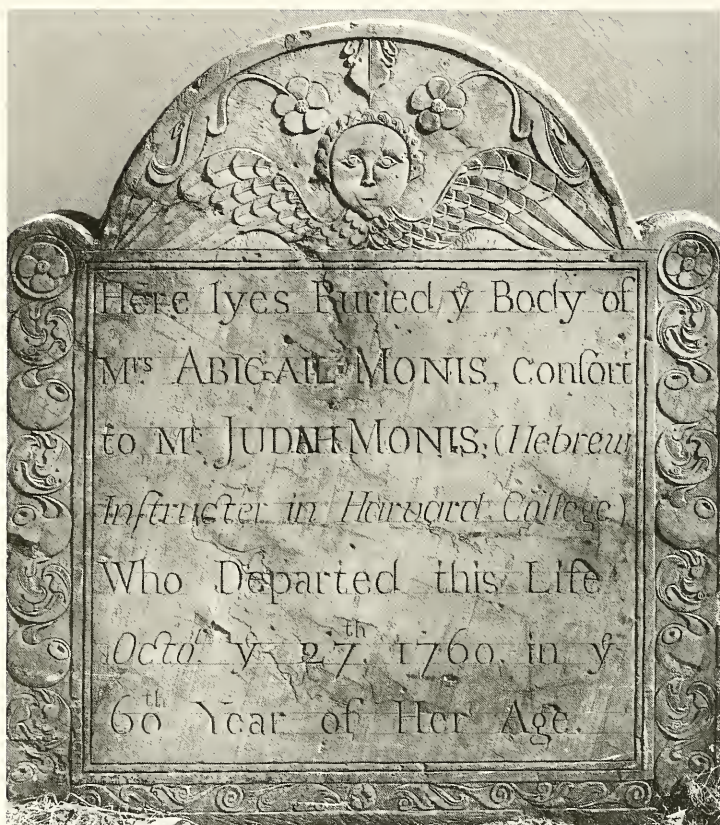 Here lyes Buried yͤ Body of
Mʳˢ ABIGAIL MONIS, Conſort
to Mʳ. JUDAH MONIS, (Hebrew
Inſtructer in Harvard College)
Who Departed this Life
Octoʳ. yͤ 27ᵗʰ. 1760. in yͤ
60ᵗʰ Year of Her Age.